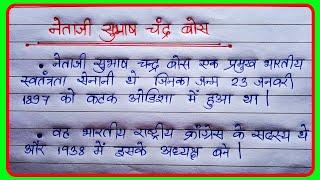 नेताजी सुभाष चंद्र बोस
• नेताजी सुभाष चन्द्र बोस एक प्रमुख भारतीय
स्वतंत्रता सेनानी थे जिनका जन्म 23 जनवरी
1897 को कटक ओडिशा में हुआ था |
• वह भारतीय राष्ट्रीय काँग्रेस के सदस्य थे
और 1938 में इसके अध्यक्ष बने |